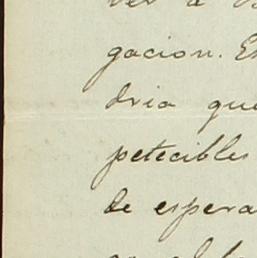 ver a
gacion. En
dria que
petecibles
de espera